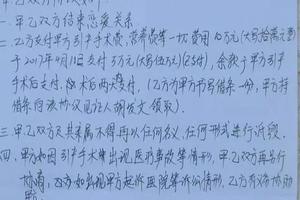 一、甲乙双方结束恋爱关系
二、乙方支付甲方引产手术费、营养费等一切费用10万元(大写拾萬元整)
于2017年4月11日支付5万元(大写伍万)(已付),余款于甲方引产
手术后支付,术后两内支付,(乙方为甲方书写借条一份,甲方持
借条向该协议见证人胡发文领取)。
三、甲乙双方及其亲属不得再以任何名义、任何形式进行诉讼。
四、甲方如因引产手术出现医疗事故等情形,甲乙双方再另行
协商,乙方如出现甲方起诉医院等诉讼情形,乙方有义务协助